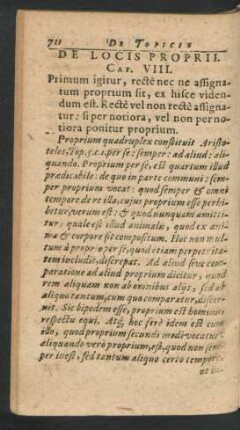 70 DE TOPICIS
DE LOCIS PROPRII.
CAP. VIII.
Primum igitur, rectè nec ne assigna
tum proprium sit, ex hisce viden
dum est. Rectè vel non rectè assigna
tur: si per notiora, vel non per no
tiora ponitur proprium.
Proprium quadruplex constituit Aristo-
teles, Top. 5. c. 1. per se: semper: ad aliud: ali-
quando. Proprium per se, est quartum illud
prædicabile: de quo in parte communi: sem-
per proprium vocat: quod semper & omni
tempore de re illa, cujus proprium esse perhi-
betur, verum est: & quod nunquam amitti-
tur: quale est illud animalis, quod ex ani-
ma & corpore sit compositum. Hoc non mul-
tum à proprio per se, quod etiam perpetuita-
tem includit, discrepat. Ad aliud sive com-
paratione ad aliud proprium dicitur, quod
rem aliquam non ab omnibus alijs, sed ab
aliquo tantum, cum quo comparatur, discer-
nit. Sic bipedem esse, proprium est hominis
respectu equi. Atq; hoc ferè idem est cum
illo, quod proprium secundi modi vocatur
aliquando verò proprium, est, quod non sem-
per inest, sed tantum aliquo certo tempore,
ut in-